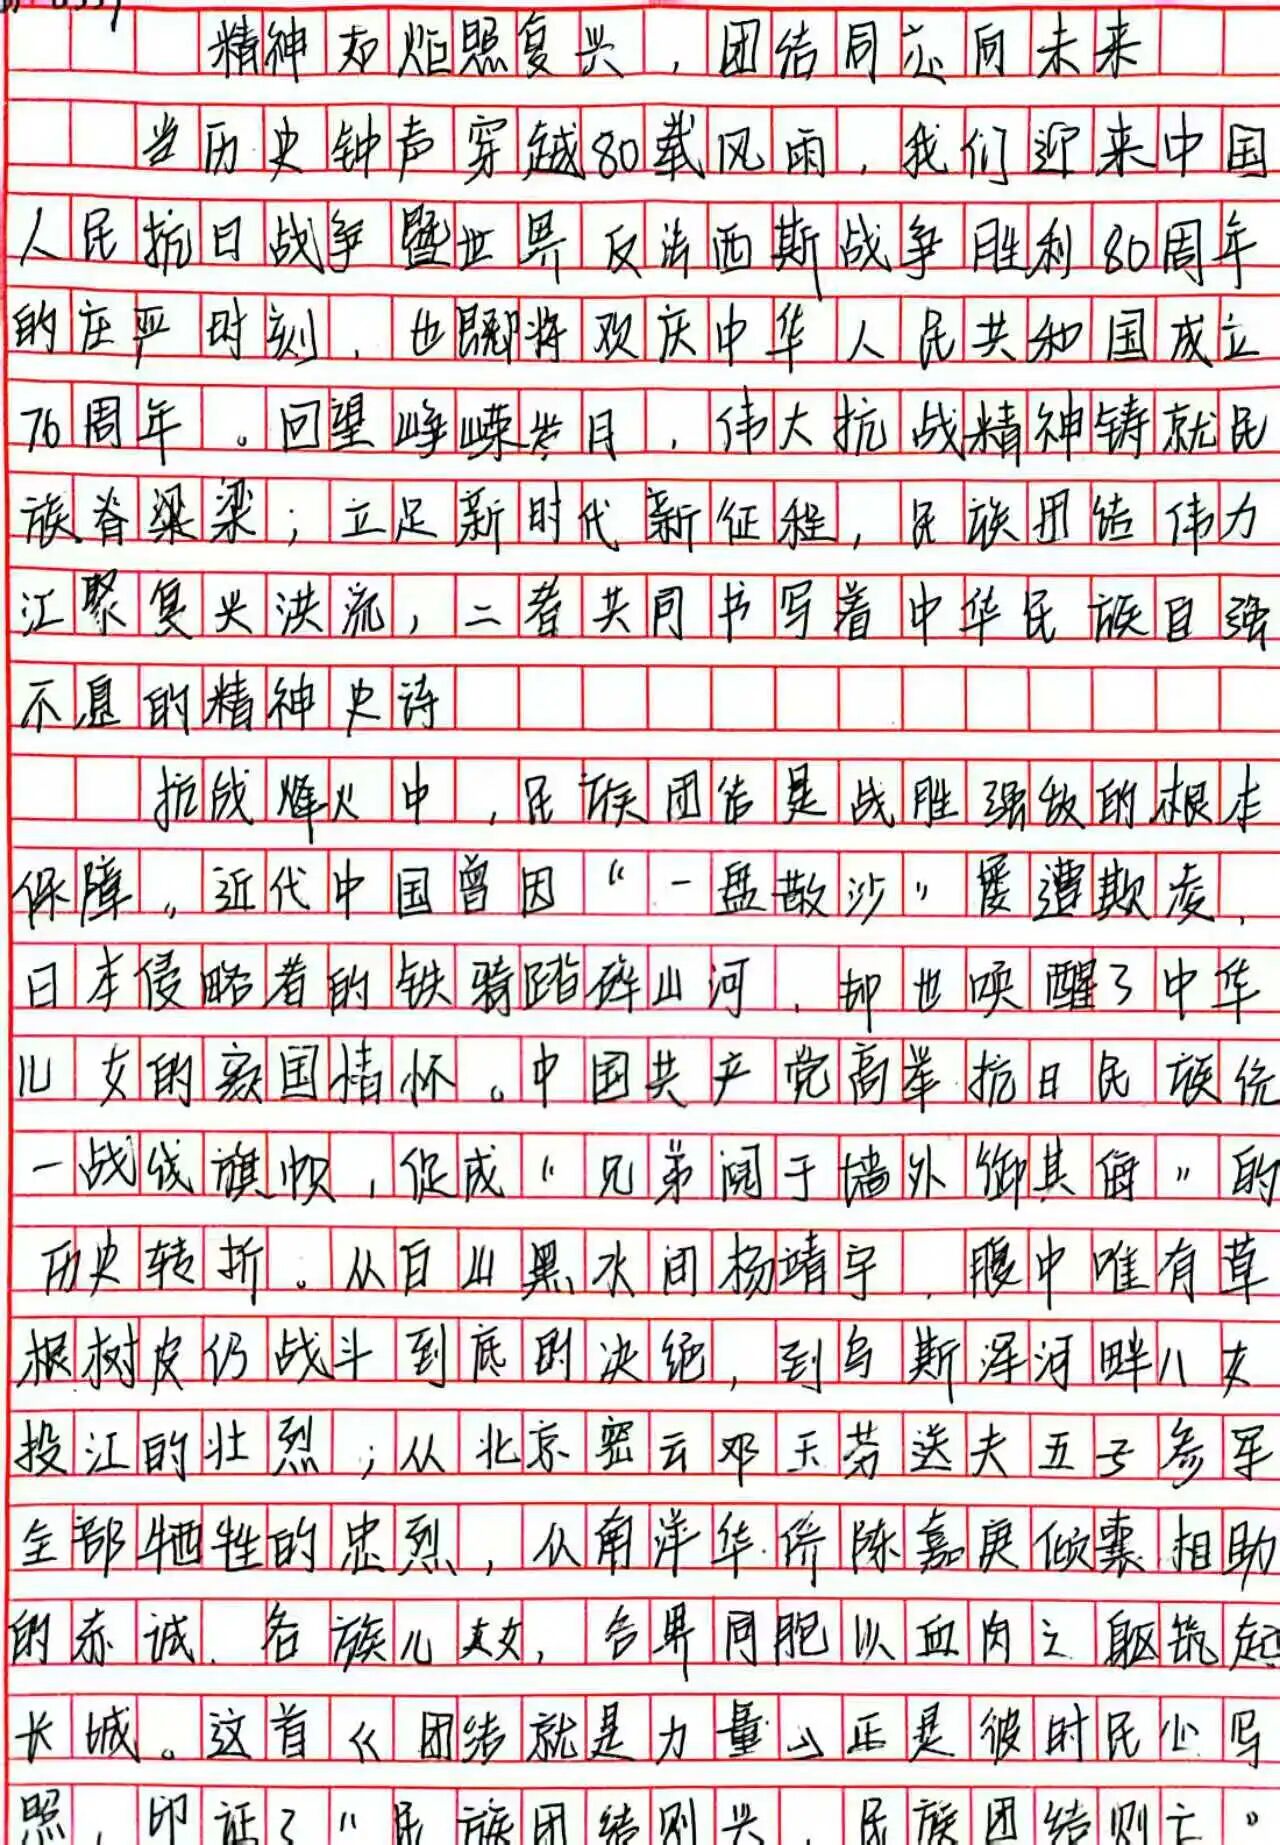 精神如炬照复兴，团结同心向未来
当历史钟声穿越80载风雨，我们迎来中国
人民抗日战争暨世界反法西斯战争胜利80周年
的庄严时刻，也即将欢庆中华人民共和国成立
76周年。回望峥嵘岁月，伟大抗战精神铸就民
族脊梁梁；立足新时代新征程，民族团结伟力
汇聚复兴洪流，二者共同书写着中华民族自强
不息的精神史诗
抗战烽火中，民族团结是战胜强敌的根本
保障。近代中国曾因“一盘散沙”屡遭欺凌，
日本侵略者的铁骑踏碎山河，却也唤醒了中华
儿女的家国情怀。中国共产党高举抗日民族统
一战线旗帜，促成“兄弟阋于墙外御其侮”的
历史转折。从白山黑水间杨靖宇，腹中唯有草
根树皮仍战斗到底的决绝，到乌斯浑河畔八女
投江的壮烈；从北京密云邓玉芬送夫五子参军
全部牺牲的忠烈，从南洋华侨陈嘉庚倾囊相助
的赤诚．各族儿女，各界同胞以血肉之躯筑起
长城。这首《团结就是力量》正是彼时民心写
照，印证了“民族团结则兴，民族团结则亡”